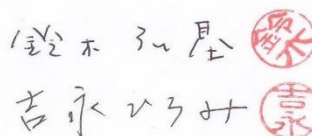 鈴木 弘基 鈴木
吉永 ひろみ 吉永